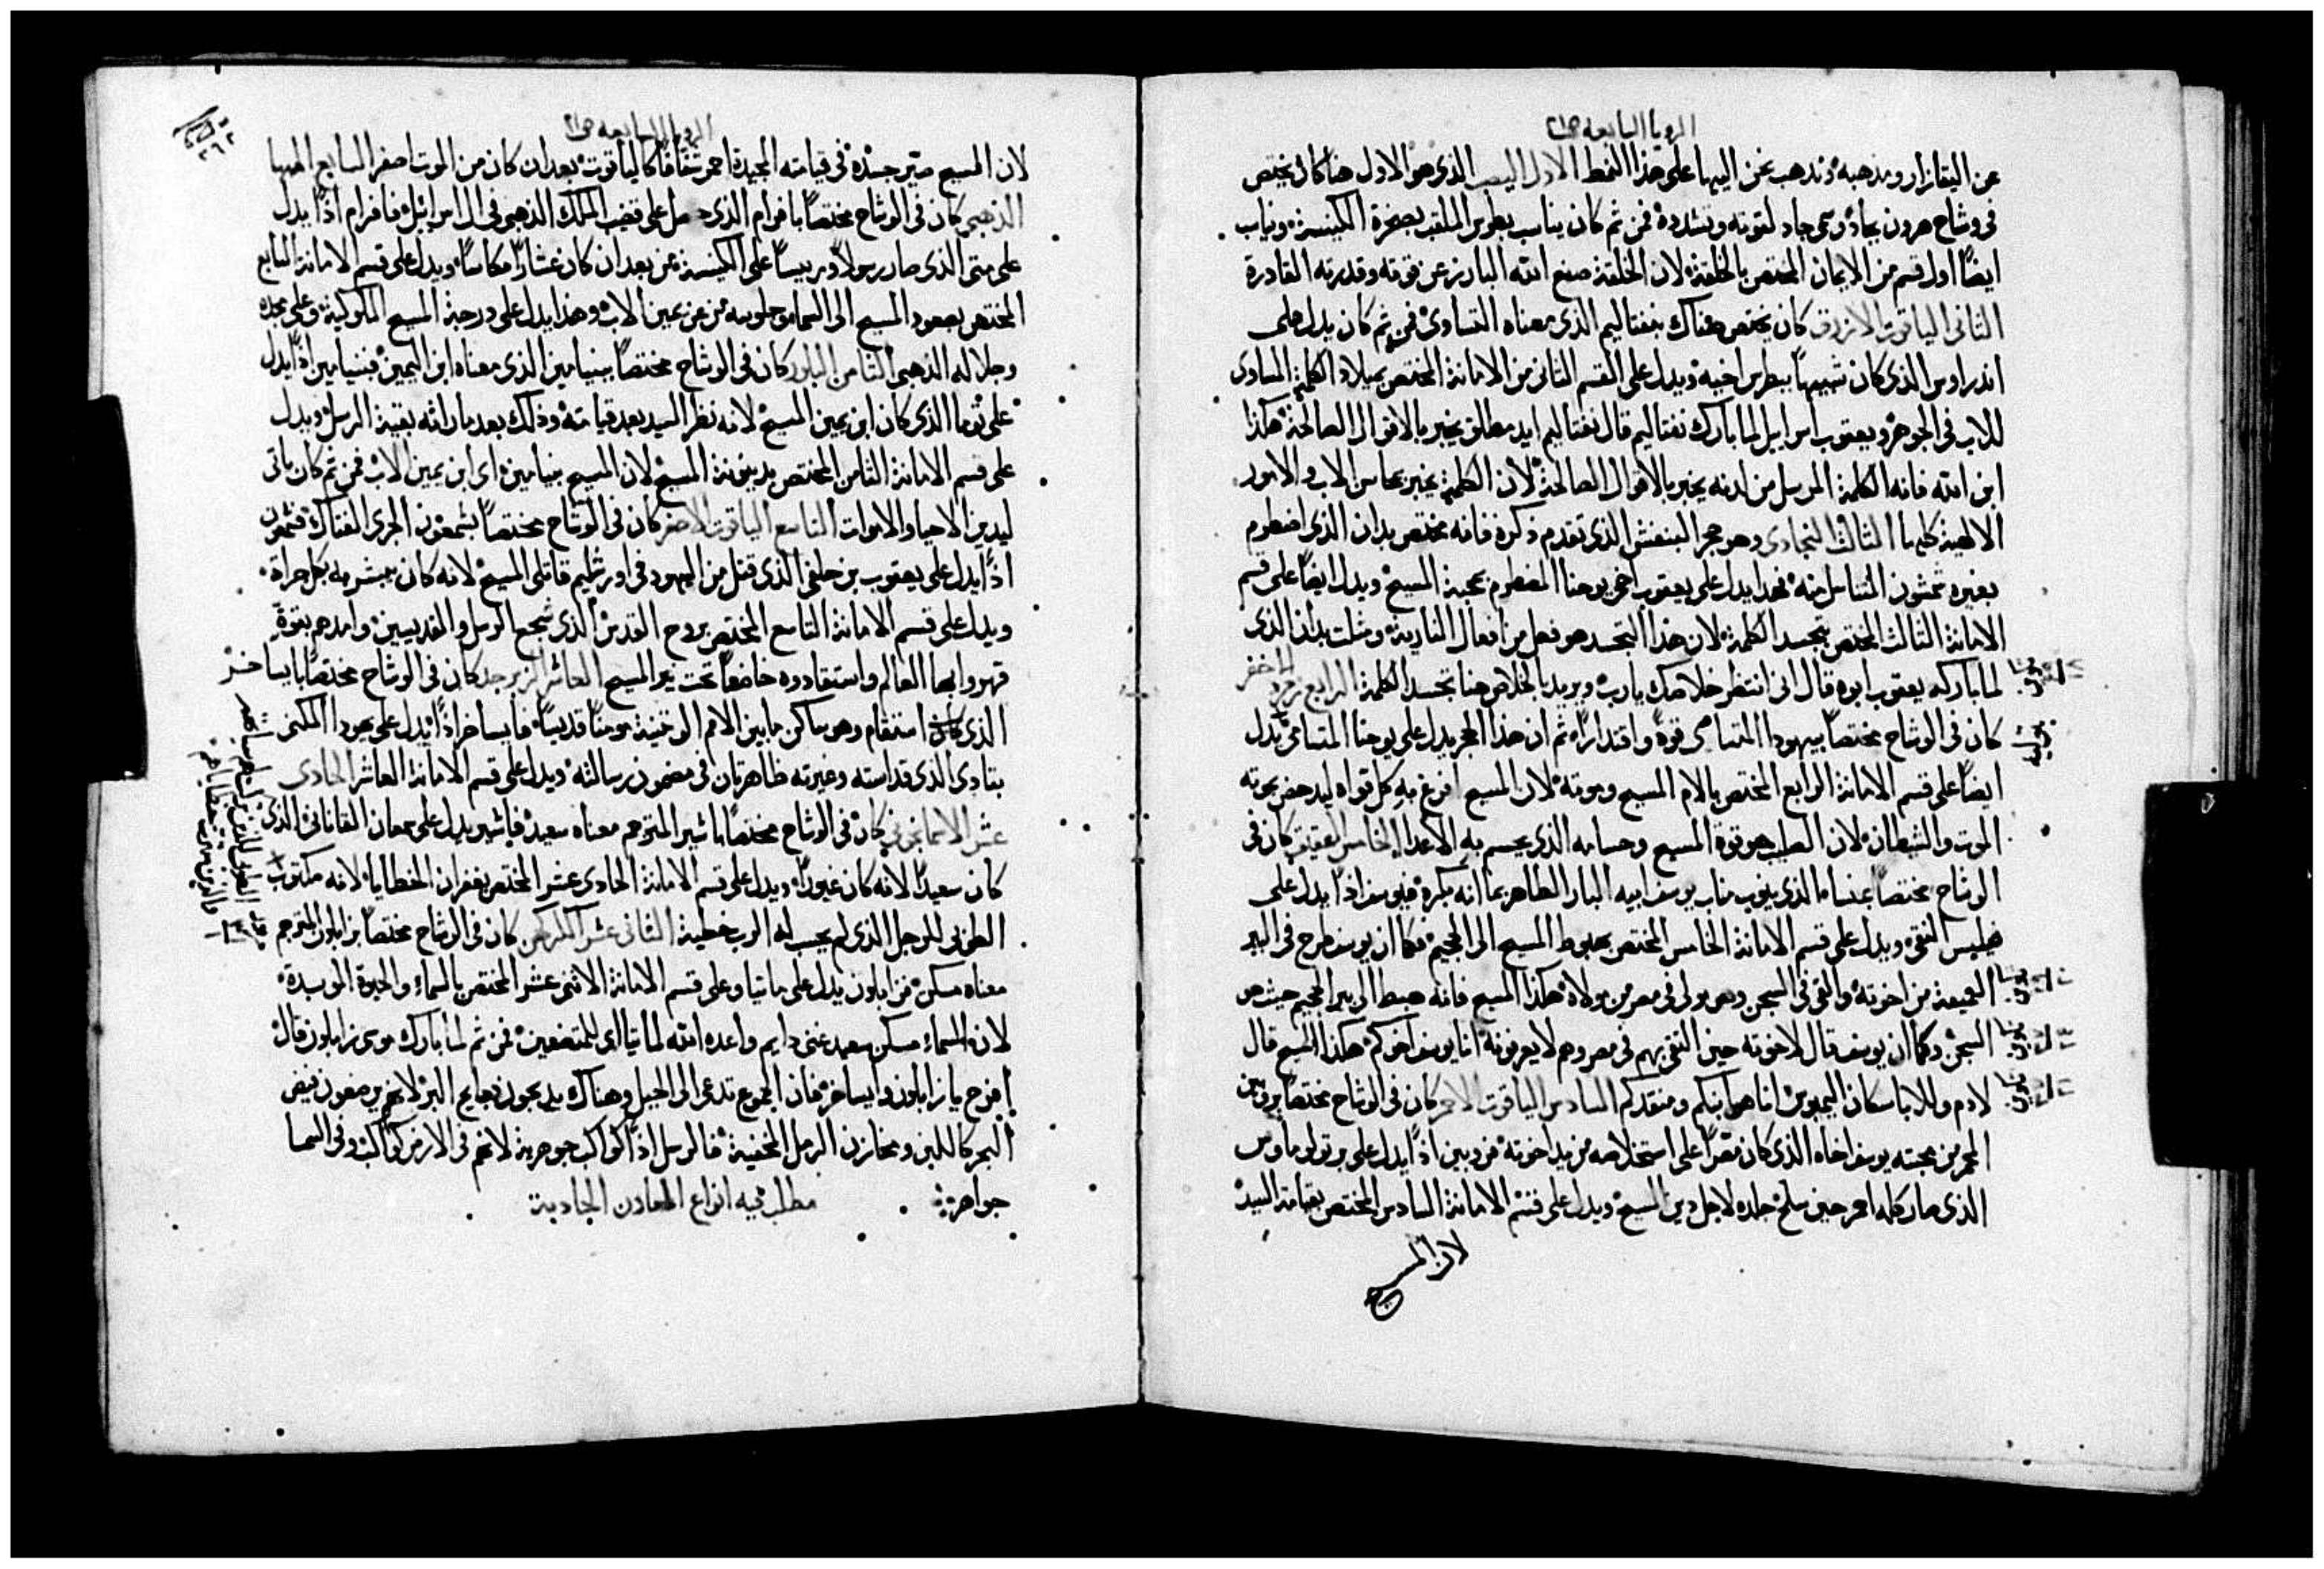 الرويا السابعه ص٢١
عن اليعازار ومذهبه ونذهب نحن اليها على هذا النمط الاول اليصب الذى هو الاول هنا كان يختص
فى وشاح هرون بجاد وسمى جاد لقوته وتشدده فمن ثم كان يناسب بطرس الملقب بصخرة الكنيسة ونياب
ايضًا اول قسم من الايمان المختص بالخلقة لان الخلقة صنع الله البارز عن قوته وقدرته القادرة
الثانى الياقوت الازرق كان يختص هناك بنفتاليم الذى معناه التساوى فمن ثم كان يدل على
اندراوس الذى كان شبيهًا ببطرس اخيه ويدل على القسم الثانى من الامانة المختص بميلاد الكلمة المساوى
للاب فى الجوهر ويعقوب اسراييل لما بارك نفتاليم قال نفتاليم ايد مطلق يخبر بالاقوال الصالحة هكذا
ابن الله فانه الكلمة المرسل من لدنه يخبر بالاقوال الصالحة لان الكلمة يخبر بمحاسن الاب والامور
الالهية كلها الثالث النجادى وهو حجر البنفش الذى تقدم ذكره فانه مختص بدان الذى اضطرم
بغيره شمشون المتناسل منه فهذا يدل على يعقوب اخى يوحنا المضطرم بمحبة المسيح ويدل ايضًا على قسم
الامانة الثالث المختص بتجسد الكلمة لان هذا التجسد هو فعل من افعال النارية ومثلت بدان الذى
لما باركه يعقوب ابوه قال انى انتظر خلاصك يا رب ويريد بالخلاص هنا تجسد الكلمة الرابع زمرد اخضر
كان فى الوشاح مختصًا بيهودا المتسامى قوةً واقتدارًا ثم ان هذا الحجر يدل على يوحنا المتسامى ويدل
ايضًا على قسم الامانة الرابع المختص بالام المسيح وموته لان المسيح افرغ به كل قواه ليدحض بموته
الموت والشيطان لان الصليب هو قوة المسيح وحسامه الذى يحسم به الاعدا الخامس العقيق كان فى
الوشاح مختصًا بمنسا الذى ينوب مناب يوسف ابيه البار الطاهر بما انه بكره فيوسف اذًا يدل على
فيلبس النقى ويدل على قسم الامانة الخامس المختص بهبوط المسيح الى الجحيم فكما ان يوسف طرح فى البير
العميقة من اخوته والقى فى السجن وهو مولى فى مصر من مولاه هكذا المسيح فانه هبط الى بير الجحيم حيث هو
السجن وكما ان يوسف قال لاخوته حين التقى بهم فى مصر وهم لا يعرفونه انا يوسف اخوكم هكذا المسيح قال
لادم وللابا سكان اليمبوس انا هو ابنكم ومنقذكم السادس الياقوت الاحمر كان فى الوشاح مختصًا بروبين
المحمر من محبته يوسف اخاه الذى كان مصرًا على استخلاصه من يد اخوته فروبين اذًا يدل على برتولوماوس
الذى صار كله احمر حين سلخ جلده لاجل دين المسيح ويدل على قسم الامانة السادس المختص بقيامة السيد
لان المسيح
الرويا السابعه ص٢١
لان المسيح صيّر جسده فى قيامته المجيدة احمر شفافًا كالياقوت بعد ان كان من الموت اصفر السابع المها
الذهبى كان فى الوشاح مختصًا بافرام الذى حصل على قضب الملك الذهبى فى ال اسرائيل فافرام اذًا يدل
على متى الذى صار رسولاً ورييسًا على الكنيسة من بعد ان كان عشارًا مكاسًا ويدل على قسم الامانة السابع
المختص بصعود المسيح الى السما وجلوسه من عن يمين الاب وهذا يدل على درجة المسيح الملوكية وعلى مجده
وجلاله الذهبى الثامن البلور كان فى الوشاح مختصًا ببنيامين الذى معناه ابن اليمين فبنيامين اذًا يدل
على توما الذى كان ابن يمين المسيح لانه نظر السيد بعد قيامته وذلك بعد ما راته بقية الرسل ويدل
على قسم الامانة الثامن المختص بدينونة المسيح لان المسيح بنيامين اى ابن يمين الاب فمن ثم كان ياتى
ليدين الاحيا والاموات التاسع الياقوت الاصفر كان فى الوشاح مختصًا بشمعون الجرى الفتاك فشمعون
اذًا يدل على يعقوب بن حلفى الذى قتل من اليهود فى اورشليم قاتلى المسيح لانه كان يبشر به بكل جراة
ويدل على قسم الامانة التاسع المختص بروح القدس الذى شجع الرسل والقديسين وامدهم بقوةٍ
قهروا بها العالم واستقادوه خاضعًا تحت نير المسيح العاشر الزبرجد كان فى الوشاح مختصًا بايساخر
الذى كان استقام وهو ساكن ما بين الامم الوثنية مومنًا قديسًا فايساخر اذًا يدل على يهودا المكنى
بتادى الذى قداسته وغيرته ظاهرتان فى مضمون رسالته ويدل على قسم الامانة العاشر الحادى
عشر الاسمانجونى كان فى الوشاح مختصًا باشير المترجم معناه سعيد فاشير يدل على سمعان القانانى الذى
كان سعيدًا لانه كان غيورًا ويدل على قسم الامانة الحادى عشر المختص بغفران الخطايا لانه مكتوب
الطوبى للرجل الذى لم يحسب له الرب خطية الثانى عشر الكركهن كان فى الوشاح مختصًا بزابلون المترجم
معناه مسكن فزابلون يدل على ماتيا وعلى قسم الامانة الاثنى عشر المختص بالسماء والحيوة الموبدة
لان السماء مسكن سعيد غنى دايم واعده الله لماتيا اى للمتضعين فمن ثم لما بارك موسى زابلون قال
افرح يا زابلون وايساخر فان الجموع تدعى الى الجبل وهناك يذبحون ذبايح البر لانهم يرضعون فيض
البحر كاللبن ومخازن الرمل المخفية فالرسل اذًا كواكب جوهرية لانهم فى الارض كواكب وفى السما
جواهر
مطلب فيه انواع المعادن الجادية